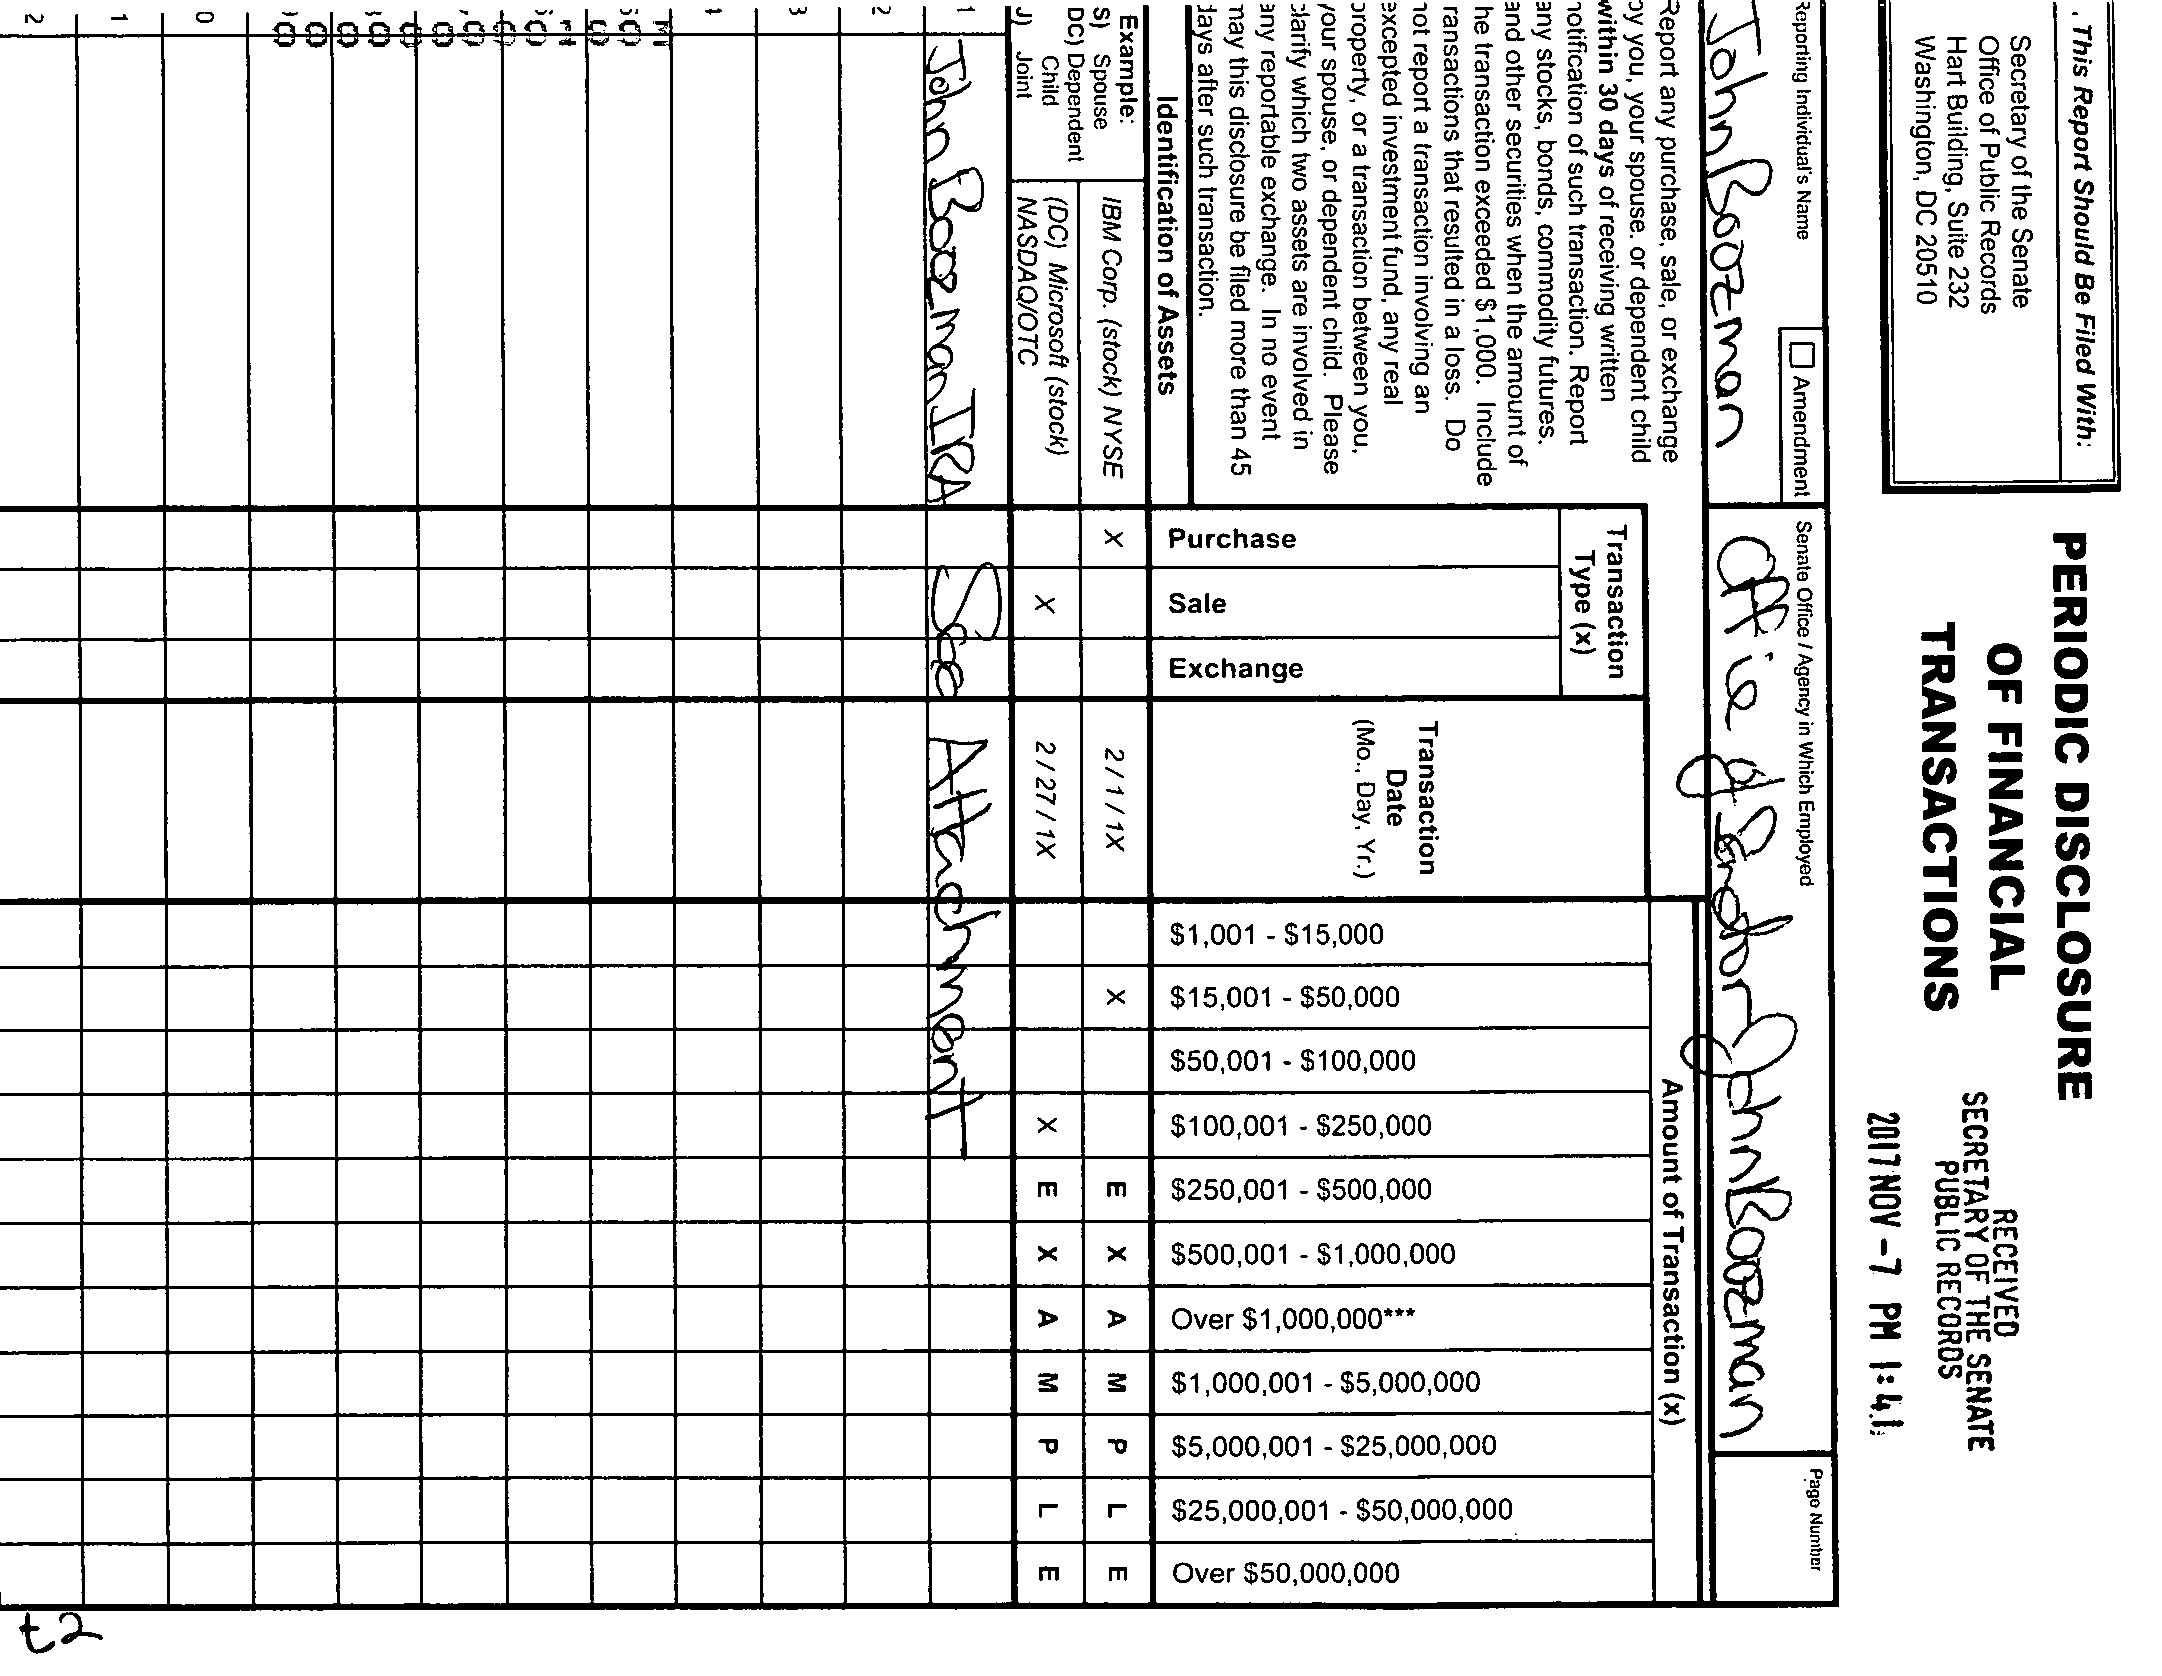 This Report Should Be Filed With:
Secretary of the Senate
Office of Public Records
Hart Building, Suite 232
Washington, DC 20510
PERIODIC DISCLOSURE
OF FINANCIAL
TRANSACTIONS
RECEIVED
SECRETARY OF THE SENATE
PUBLIC RECORDS
2017 NOV -7 PM 1:41
Reporting Individual's Name
Amendment
Senate Office / Agency in Which Employed
Page Number
John Boozman
Office of Senator John Boozman
Report any purchase, sale, or exchange
by you, your spouse, or dependent child
within 30 days of receiving written
notification of such transaction. Report
any stocks, bonds, commodity futures,
and other securities when the amount of
he transaction exceeded $1,000. Include
ransactions that resulted in a loss. Do
not report a transaction involving an
excepted investment fund, any real
property, or a transaction between you,
your spouse, or dependent child. Please
clarify which two assets are involved in
any reportable exchange. In no event
may this disclosure be filed more than 45
days after such transaction.
Transaction
Type (x)
Transaction
Date
(Mo., Day, Yr.)
Amount of Transaction (x)
Identification of Assets
Purchase
Sale
Exchange
$1,001 - $15,000
$15,001 - $50,000
$50,001 - $100,000
$100,001 - $250,000
$250,001 - $500,000
$500,001 - $1,000,000
Over $1,000,000***
$1,000,001 - $5,000,000
$5,000,001 - $25,000,000
$25,000,001 - $50,000,000
Over $50,000,000
Example:
S) Spouse
DC) Dependent
Child
J) Joint
IBM Corp. (stock) NYSE X 2 / 1 / 1X X E X A M P L E
(DC) Microsoft (stock)
NASDAQ/OTC X 2 / 27 / 1X X E X A M P L E
1 John Boozman IRA See Attachment
2
3
4
0
1
2
t2